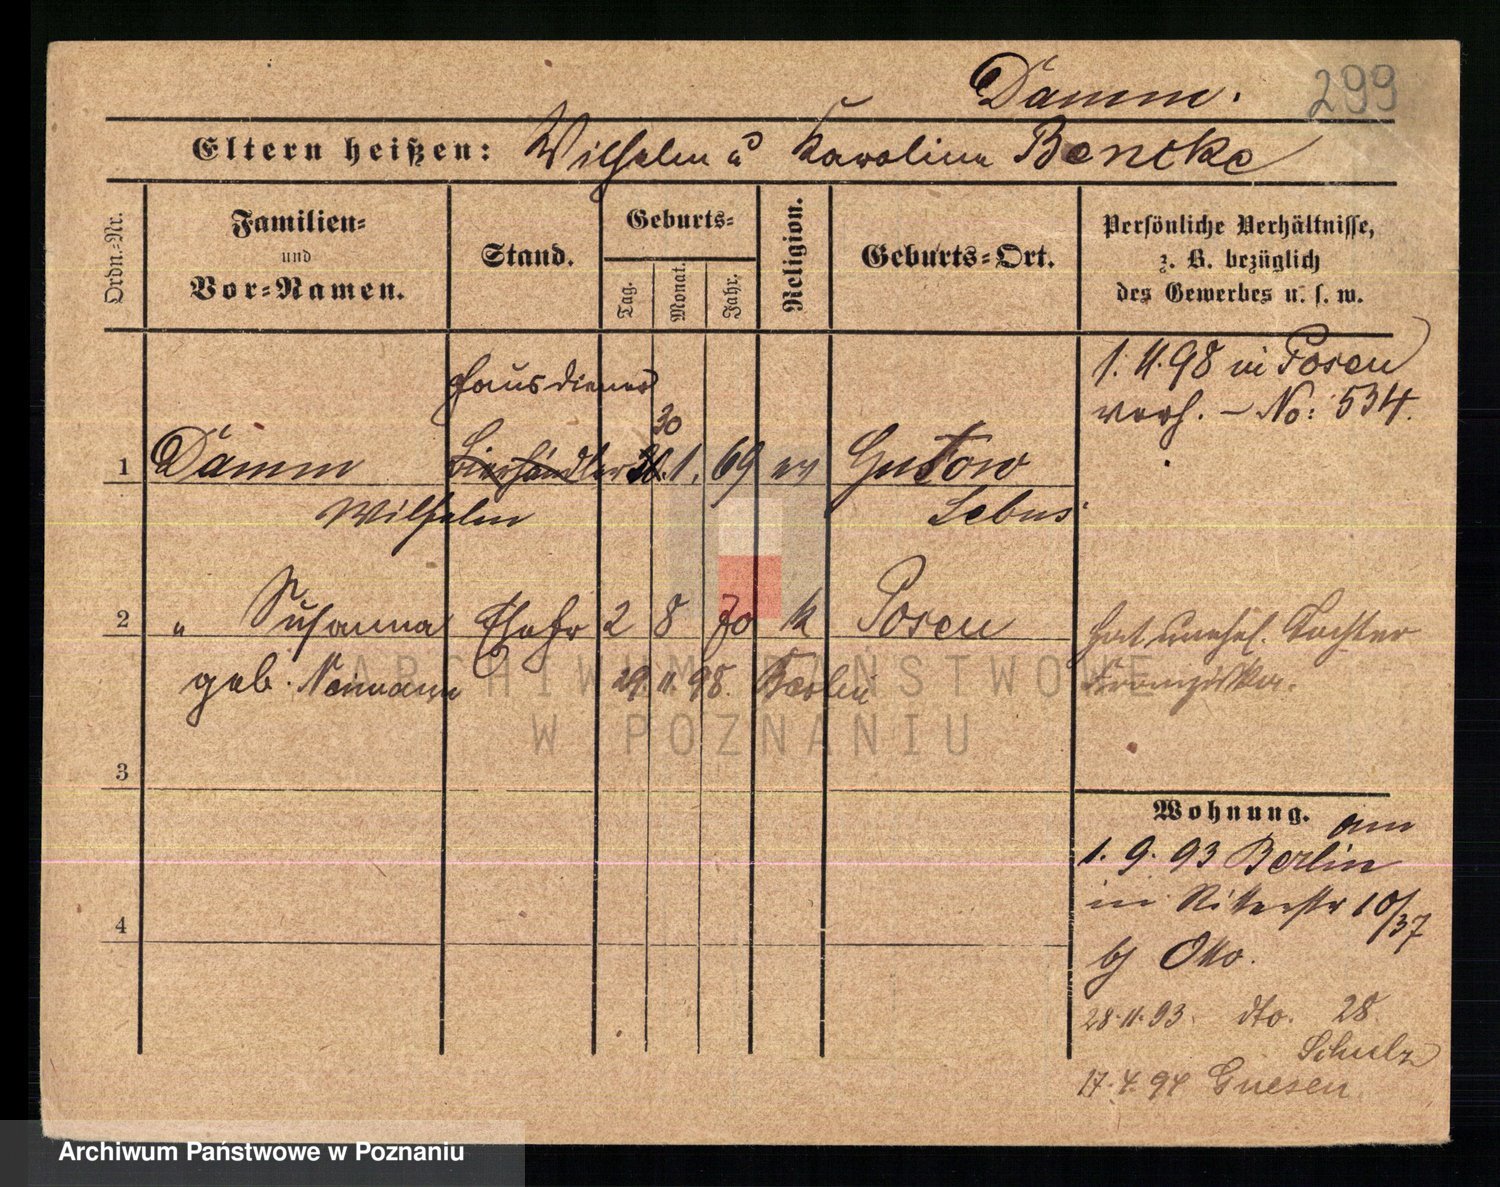 Damm.
299
Eltern heißen: Wilhelm u Karolina Bencke
Ordn.-Nr.
Familien-
und
Vor-Namen.
Stand.
Geburts-
Tag.
Monat.
Jahr.
Religion.
Geburts-Ort.
Persönliche Verhältnisse,
z. B. bezüglich
des Gewerbes u. s. w.
1. 11. 98 in Posen
verh. – No: 534.
Hausdiener
30
1 Damm Bierhändler 1. 69 ev Gustow
Wilhelm Lebus
2 " Susanna Ehefr 2 8 70 k Posen
geb. Neumann 29 11. 98. Berlin
Hat unehel. Tochter
Franziska.
3
4
Wohnung. am
1. 9. 93 Berlin
in Ritterstr 10/37
bj Otto.
28. 11. 93. dto. 28.
Schulz
17. 4. 94 Gnesen
ARCHIWUM PAŃSTWOWE
W POZNANIU
Archiwum Państwowe w Poznaniu